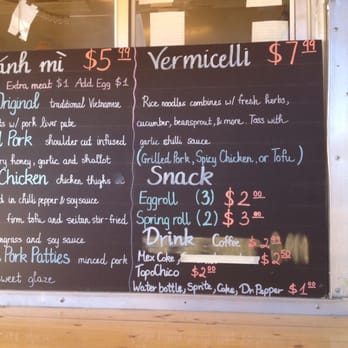 ánh mì $5.99
Extra meat $1 Add Egg $1
Original traditional Vietnamese
ts w/ pork liver pate
Pork shoulder cut infused
honey, garlic and shallot
Chicken chicken thighs
in chili pepper & soy sauce
firm tofu and seitan stir-fried
grass and soy sauce
Pork Patties minced pork
sweet glaze
Vermicelli $7.99
Rice noodles combines w/ fresh herbs,
cucumber, beansprout, & more. Toss with
garlic chilli sauce
(Grilled Pork, Spicy Chicken, or Tofu)
Snack
Eggroll (3) $2.00
Spring roll (2) $3.00
Drink Coffee $2
Mex Coke, $2.50
TopoChico $2.00
Water bottle, Sprite, Coke, Dr. Pepper $1.00